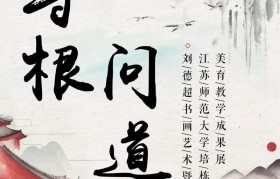 寻根
问道
刘德超书画艺术暨
江苏师范大学培栋
美育教学成果展